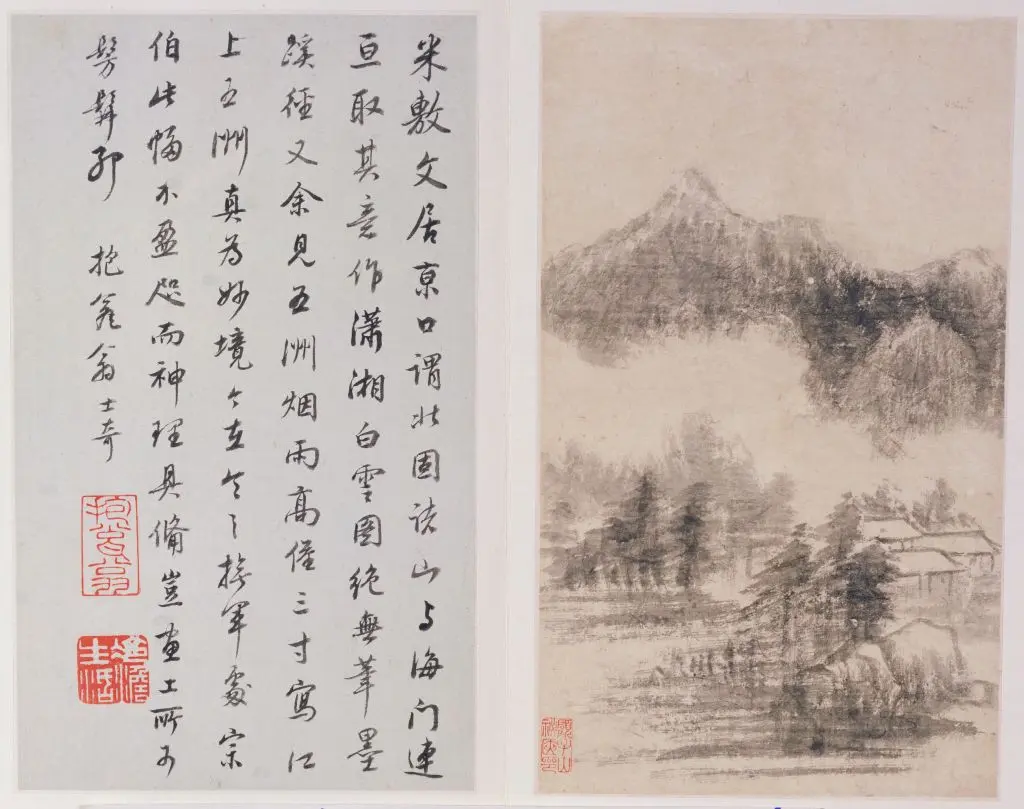 米敷文居京口謂北固諸山与海门連
亘取其意作瀟湘白雲圖絶無筆墨
蹊徑又余見五洲烟雨高僅三寸寫江
上五洲真為妙境今在令之軍處宗
伯此幅不盈咫而神理具備豈畫工所可
髣髴耶 抱瓮翁士奇
抱瓮翁
顧子山秘笈印